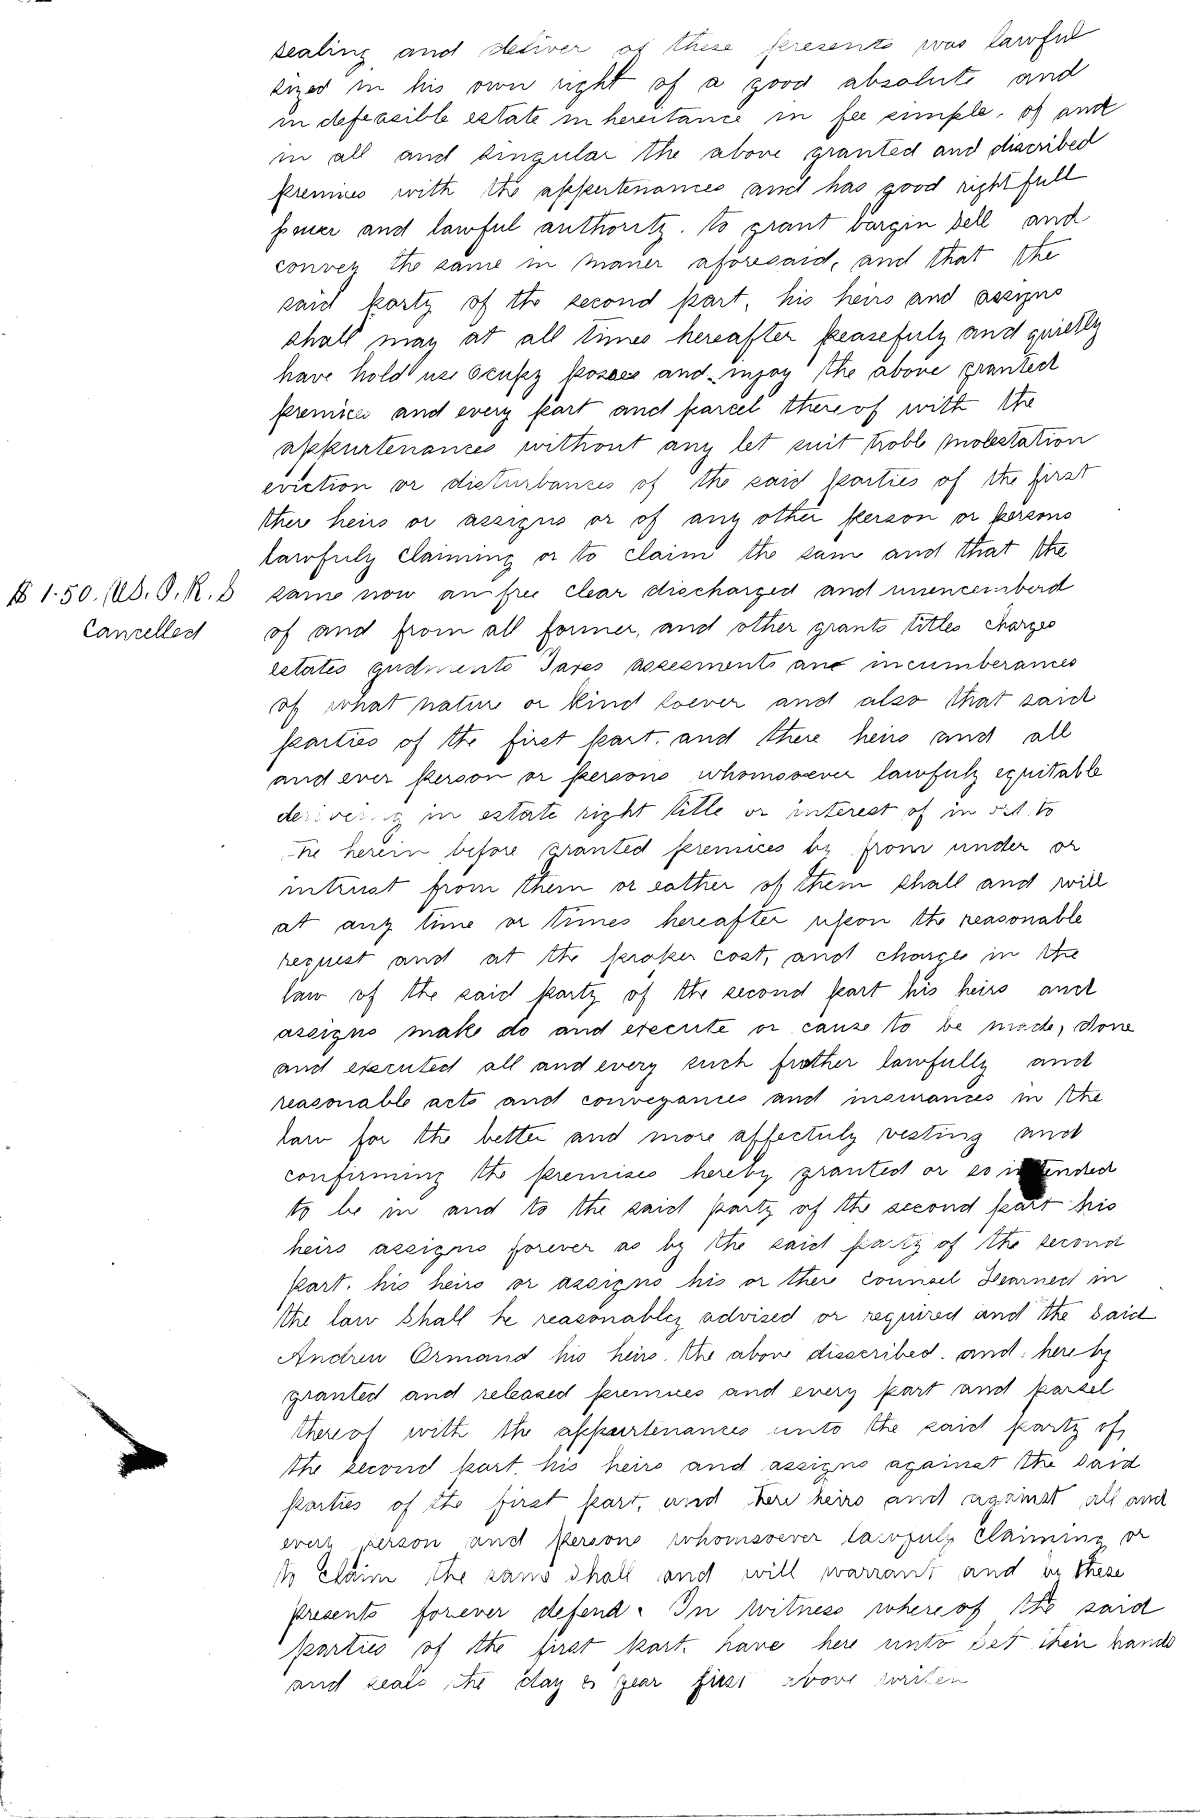 sealing and deliver of these presents was lawful
sized in his own right of a good absolute and
in defeasible estate in hereitance in fee simple. of and
in all and singular the above granted and discribed
premices with the appertenances and has good right full
power and lawful authority. to grant bargin sell and
convey the same in maner aforesaid, and that the
said party of the second part, his heirs and assigns
shall may at all times hereafter peasefuly and quietly
have hold use occupy posses and injoy the above granted
premices and every part and parcel thereof with the
appurtenances without any let suit troble molestation
eviction or disturbances of the said parties of the first
there heirs or assigns or of any other person or persons
lawfuly claiming or to claim the same and that the
$ 1.50. U.S. I. R. S
Cancelled
same now an free clear discharged and unencemberd
of and from all former, and other grants titles charges
estates gudments Taxes assesments and incumberances
of what nature or kind soever and also that said
parties of the first part. and there heirs and all
and ever person or persons whomsoever lawfuly equitable
deriveing in estate right title or interest of in to
the herein before granted premices by from under or
intrust from them or eather of them shall and will
at any time or times hereafter upon the reasonable
request and at the proper cost, and charges in the
law of the said party of the second part his heirs and
assigns make do and execute or cause to be made, done
and executed all and every such further lawfully and
reasonable acts and conveyances and insurances in the
law for the better and more affectuly vesting and
confirming the premises hereby granted or so intended
to be in and to the said party of the second part his
heirs assigns forever as by the said party of the second
part. his heirs or assigns his or there counsel Learned in
the law shall be reasonabley advised or required and the said
Andrew Ormand his heirs. the above disscribed. and. hereby
granted and released premices and every part and parsel
thereof with the appurtenances unto the said party of
the second part. his heirs and assigns against the said
parties of the first part, and there heirs and against all and
every person and persons whomsoever lawfuly claiming or
to claim the same shall and will warrant and by these
presents forever defend. In witness whereof the said
parties of the first part. have here unto set their hands
and seals the day & year first above writen